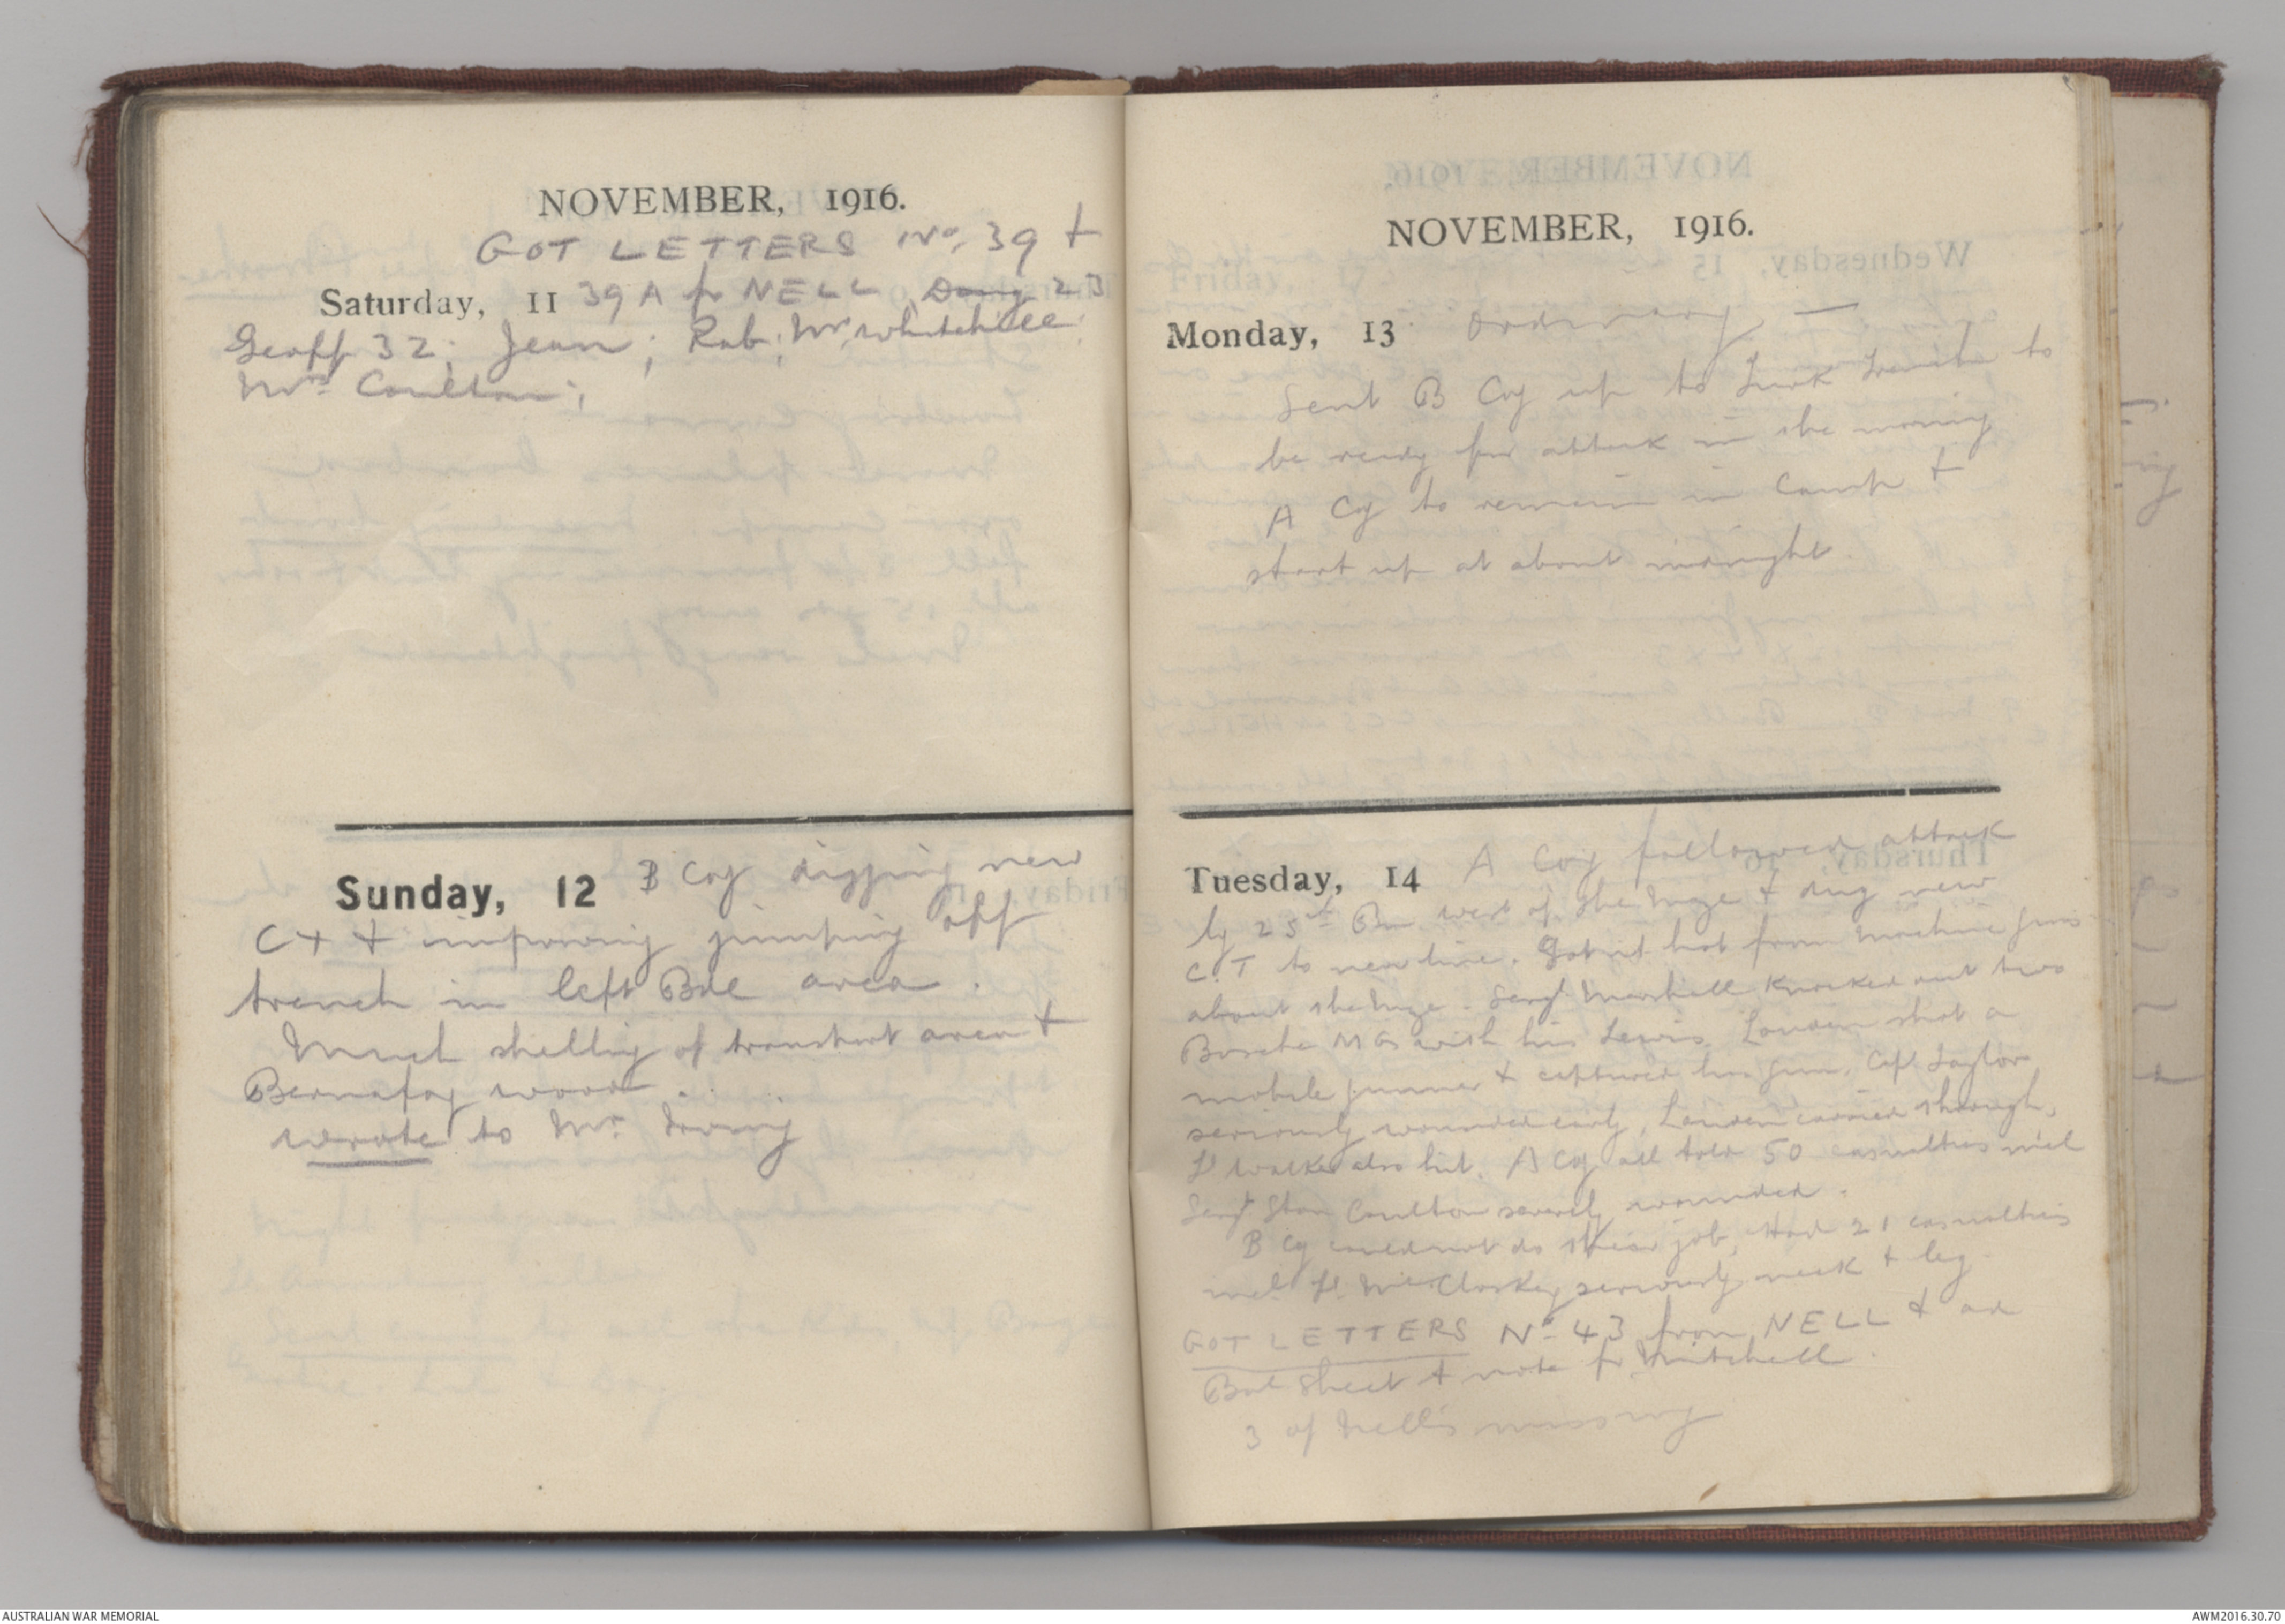 NOVEMBER, 1916.
GOT LETTERS No. 39 +
Saturday, 11 39A fr NELL, Doug 23
Geoff 32; Jean; Rab; Mr Whitchell
Mrs. Coulton;
Sunday, 12 B Coy digging new
CT + improving jumping off
trench in left Bde area.
Much shelling of transport area +
Bernafay wood.
wrote to Mr. Irving
NOVEMBER, 1916.
Monday, 13 Ordinary —
Sent B Coy up to Turk trench to
be ready for attack in the morning
A Coy to remain in Camp +
start up at about midnight.
Tuesday, 14 A Coy followed attack
by 25th Bn west of the Maze + dug new
C.T to new line. Got it hot from machine guns
about the Maze. Sergt Marshall knocked out two
Bosche MGs with his Lewis. Louden shot a
mobile gunner + captured his gun. Capt Taylor
seriously wounded early, Louden carried through,
Lt Walker also hit. A Coy all told 50 casualties incl
Sergt Stan Coulton severely wounded.
B Coy could not do their job. Had 21 casualties
incl Lt McCloskey seriously neck + leg
GOT LETTERS No. 43 from NELL + an
Bal Sheet + note fr Mitchell.
3 of Nell's missing
AUSTRALIAN WAR MEMORIAL
AWM2016.30.70